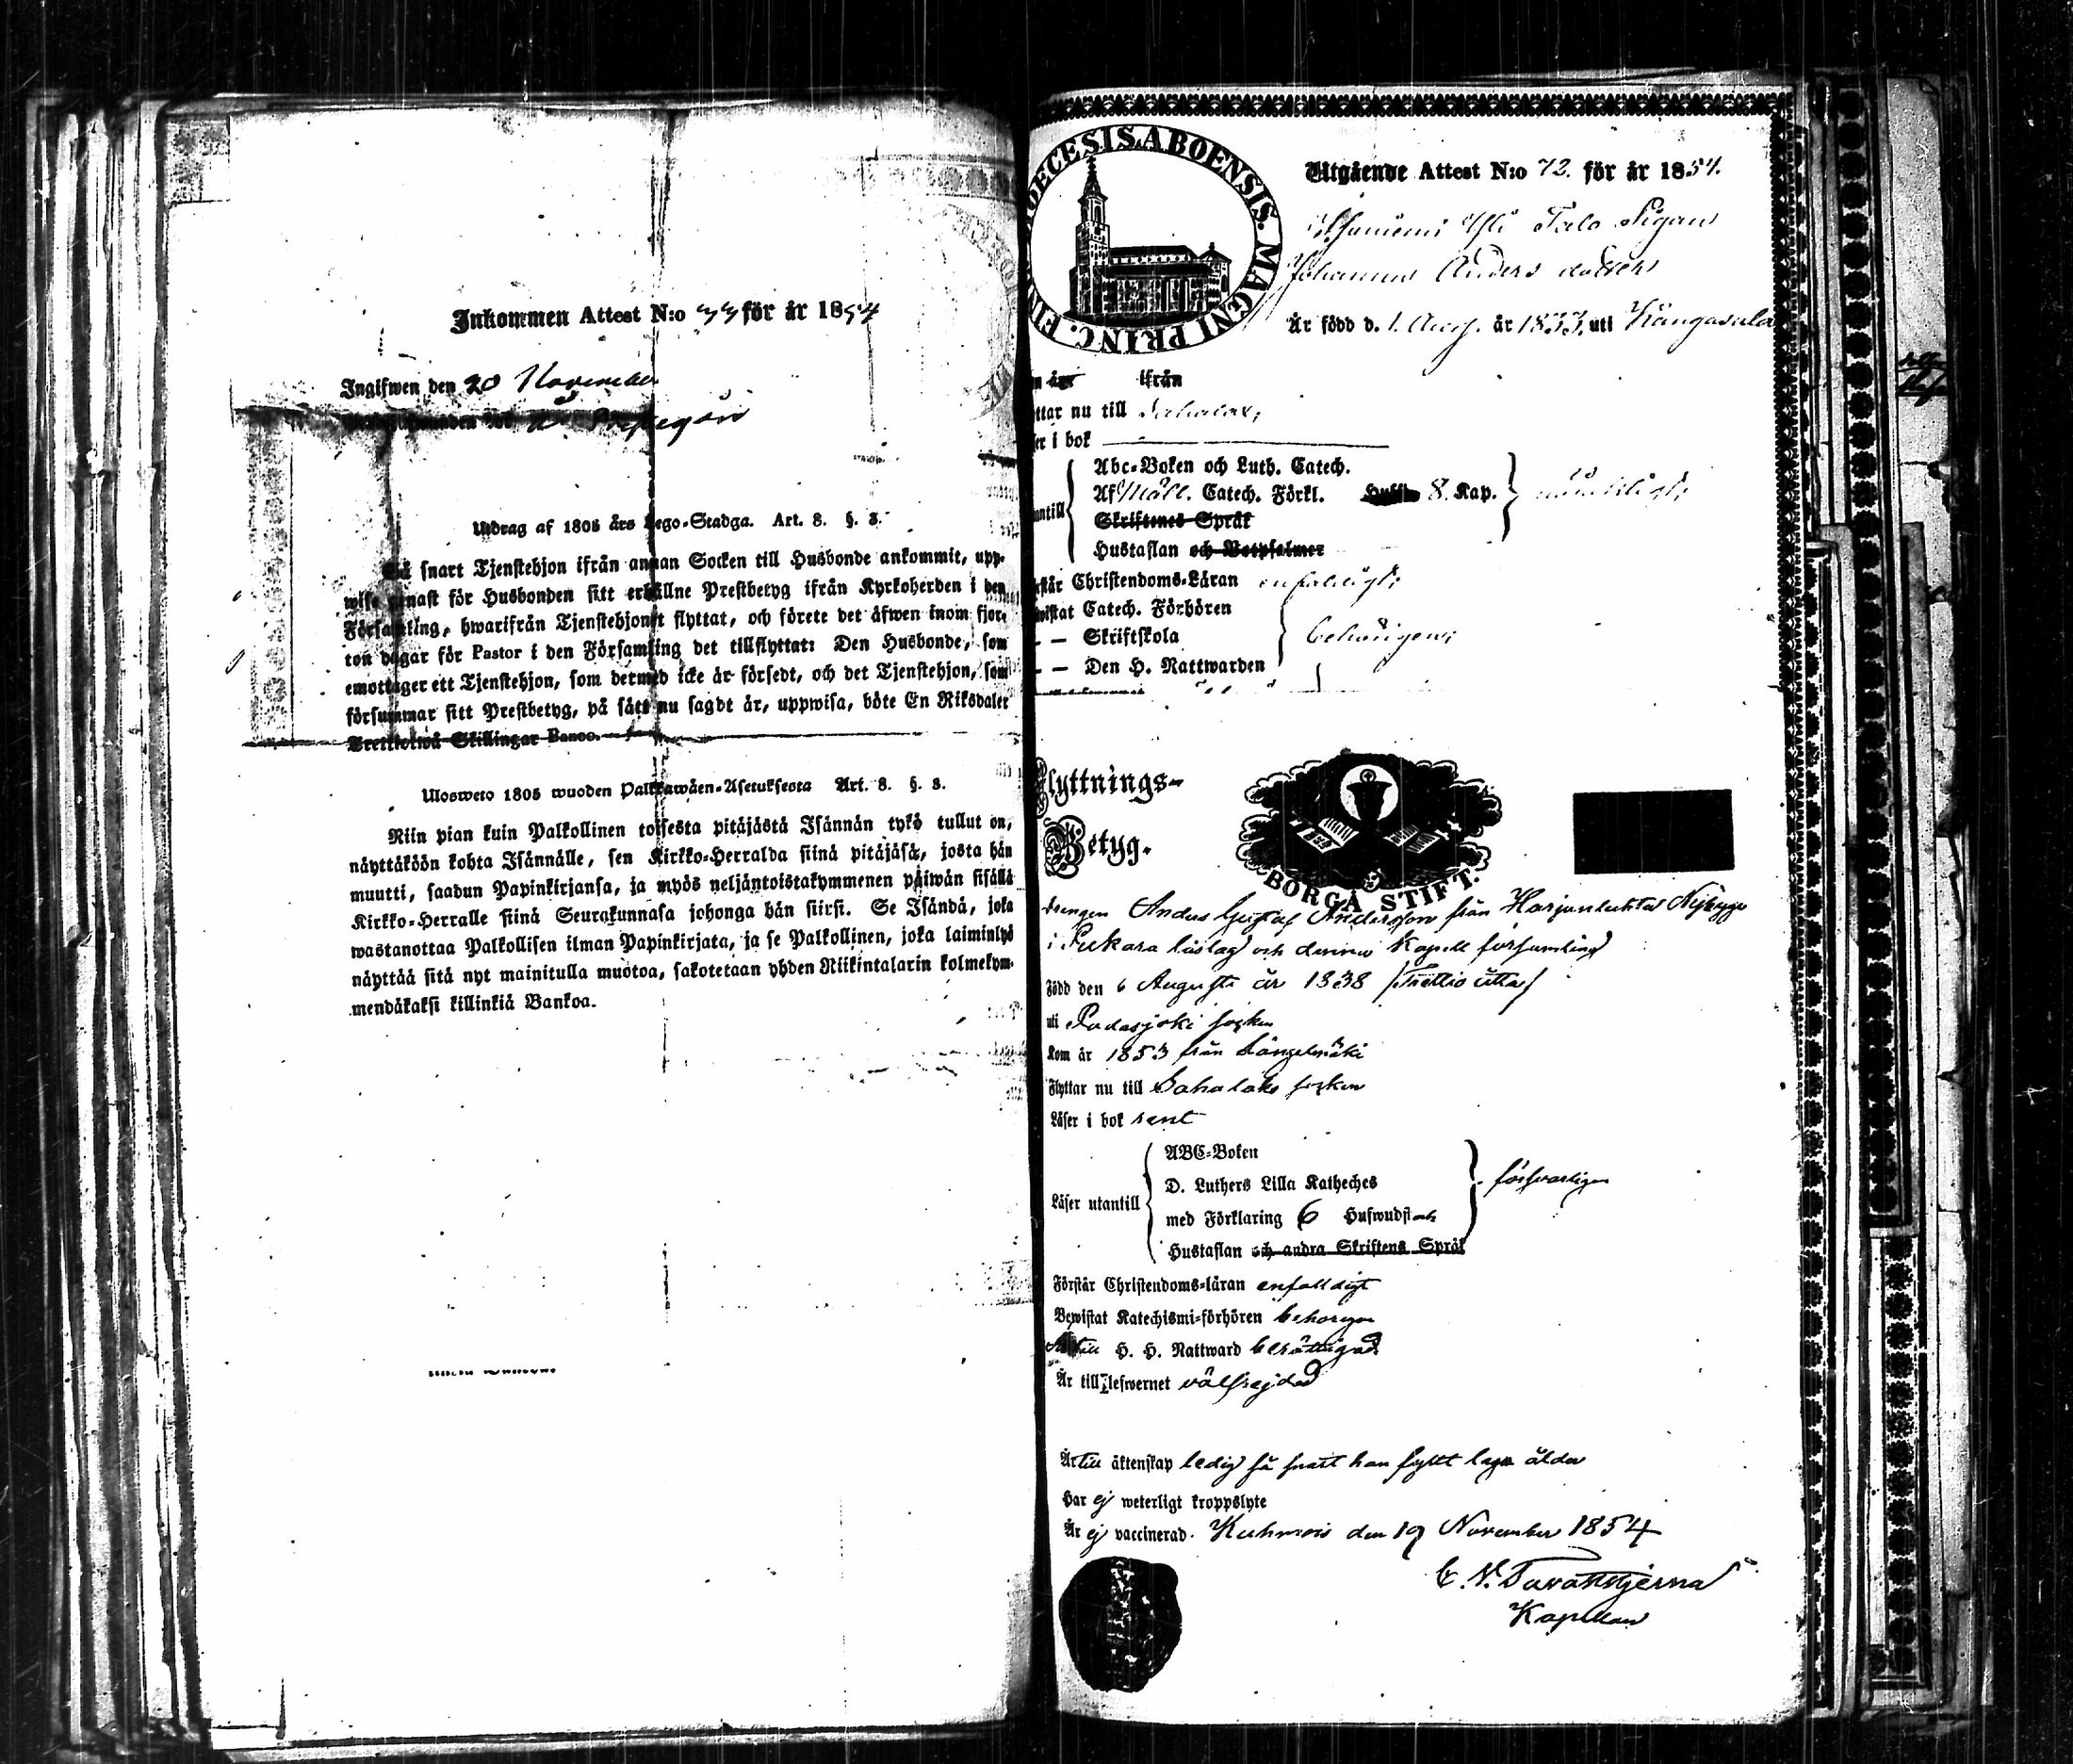 Inkommen Attest N:o 33 för år 1854
Ingifwen den 20 November
Utdrag af 1805 års Lego-Stadga. Art. 8. §. 3.
Så snart Tjenstehjon ifrån annan Socken till Husbonde ankommit, upp-
wise genast för Husbonden sitt erhållne Prestbetyg ifrån Kyrkoherden i den
Församling, hwarifrån Tjenstehjonet flyttat, och förete det äfwen inom fjor-
ton dagar för Pastor i den Församling det tillflyttat: Den Husbonde, som
emottager ett Tjenstehjon, som dermed icke är försedt, och det Tjenstehjon, som
försummar sitt Prestbetyg, på sätt nu sagdt är, uppwisa, böte En Riksdaler
Trettiotwå Skillingar Banco.
Ulosweto 1805 wuoden Palkkawäen-Asetuksesta Art. 8. §. 3.
Niin pian kuin Palkollinen toisesta pitäjästä Isännän tykö tullut on,
näyttäköön kohta Isännälle, sen Kirkko-Herralda siinä pitäjäsä, josta hän
muutti, saadun Papinkirjansa, ja myös neljäntoistakymmenen päiwän sisällä
Kirkko-Herralle siinä Seurakunnasa johonga hän siirsi. Se Isändä, joka
wastanottaa Palkollisen ilman Papinkirjata, ja se Palkollinen, joka laiminlyö
näyttää sitä nyt mainitulla muotoa, sakotetaan yhden Riikintalarin kolmekym-
mendäkaksi killinkiä Bankoa.
DIOECESIS.ABOENSIS. MAGNI PRINC. FIN
Utgående Attest N:o 72. för år 1854.
Talo Pigan
Johanna Anders dotter
Är född d. 1. Aug. år 1833, uti Kangasala
ifrån
ttar nu till Sahalax,
er i bok
Abc-Boken och Luth. Catech.
Af Möll. Catech. Förkl. 8. Kap.
antill
Skriftenes Språk
Hustaflan och Botpsalmer
rstår Christendoms-Läran enfaldigt;
wistat Catech. Förhören
— Skriftskola behörigen;
— Den H. Nattwarden
Flyttnings-
Betyg.
BORGÅ STIFT.
drengen Anders Gustaf Andersson från Harjunlukka Nybygge
i Pukara låslag och denna Kapell församling
Född den 6 Augusti år 1838 (Trettio åtta)
uti Padasjoki socken
Kom år 1853 från Längelmäki
Flyttar nu till Sahalaks socken
Läser i bok rent
ABC-Boken
D. Luthers Lilla Katheches
Läser utantill
med Förklaring 6 Hufwudst försvarligen
Hustaflan och andra Skriftens Språk
Förstår Christendoms-läran enfalldigt
Bewistat Katechismi-förhören behörigen
till H. H. Nattward berättigad
Är till lefwernet välfrejdad
Är till äktenskap ledig så snart han fyllt laga ålder
Har ej weterligt kroppslyte
Är ej vaccinerad. Kuhmois den 19 November 1854
C. N. Tavaststjerna
Kapellan